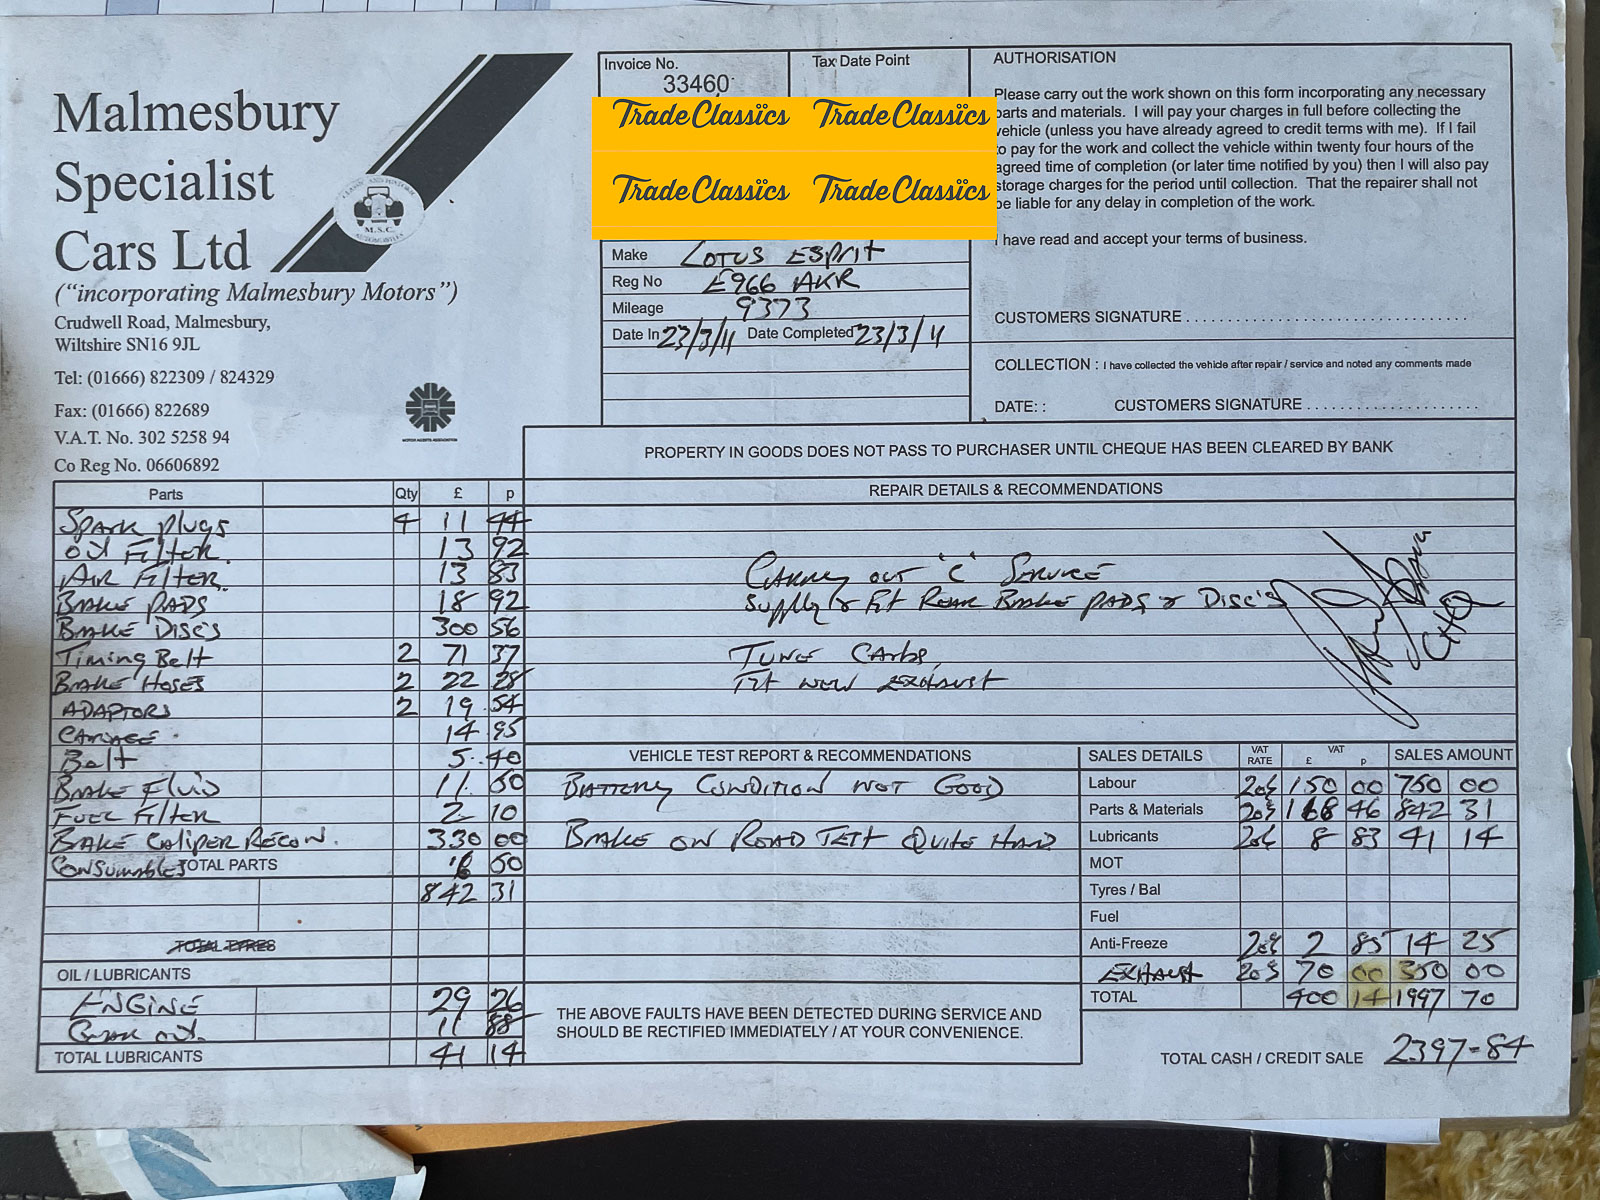 Malmesbury
Specialist
Cars Ltd
("incorporating Malmesbury Motors")
Crudwell Road, Malmesbury,
Wiltshire SN16 9JL
Tel: (01666) 822309 / 824329
Fax: (01666) 822689
V.A.T. No. 302 5258 94
Co Reg No. 06606892
M.S.C.
Invoice No.
33460
Tax Date Point
TradeClassics TradeClassics
TradeClassics TradeClassics
Make LOTUS ESPRIT
Reg No E966 AKR
Mileage 9373
Date In 23/3/11 Date Completed 23/3/11
AUTHORISATION
Please carry out the work shown on this form incorporating any necessary
parts and materials. I will pay your charges in full before collecting the
vehicle (unless you have already agreed to credit terms with me). If I fail
to pay for the work and collect the vehicle within twenty four hours of the
agreed time of completion (or later time notified by you) then I will also pay
storage charges for the period until collection. That the repairer shall not
be liable for any delay in completion of the work.
I have read and accept your terms of business.
CUSTOMERS SIGNATURE
COLLECTION : I have collected the vehicle after repair / service and noted any comments made
DATE: : CUSTOMERS SIGNATURE
PROPERTY IN GOODS DOES NOT PASS TO PURCHASER UNTIL CHEQUE HAS BEEN CLEARED BY BANK
Parts Qty £ p
Spark plugs 4 11 44
Oil Filter 13 92
Air Filter 13 83
Brake Pads 18 92
Brake Disc's 300 56
Timing Belt 2 71 37
Brake Hoses 2 22 28
ADAPTORS 2 19 54
14 95
Belt 5 40
Brake Fluid 11 50
Fuel Filter 2 10
Brake Caliper Recon. 330 00
Consumables TOTAL PARTS 6 50
842 31
TOTAL TYRES
OIL / LUBRICANTS
ENGINE 29 26
Gear oil 11 88
TOTAL LUBRICANTS 41 14
REPAIR DETAILS & RECOMMENDATIONS
Carry out 'C' Service
Supply & Fit Rear Brake pads & Disc's
Tune Carbs,
Fit new exhaust
CHQ
VEHICLE TEST REPORT & RECOMMENDATIONS
Battery Condition not Good
Brake on Road Test Quite Hard
THE ABOVE FAULTS HAVE BEEN DETECTED DURING SERVICE AND
SHOULD BE RECTIFIED IMMEDIATELY / AT YOUR CONVENIENCE.
SALES DETAILS VAT RATE VAT £ p SALES AMOUNT
Labour 20% 150 00 750 00
Parts & Materials 20% 168 46 842 31
Lubricants 20% 8 83 41 14
MOT
Tyres / Bal
Fuel
Anti-Freeze 20% 2 85 14 25
EXHAUST 20% 70 00 350 00
TOTAL 400 14 1997 70
TOTAL CASH / CREDIT SALE 2397-84